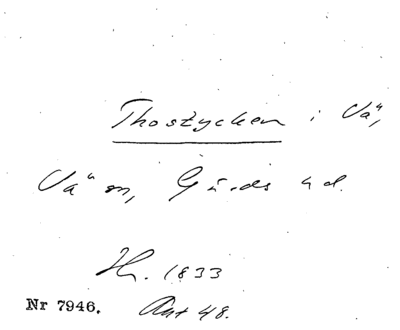 Thostycken i Vä,
Vä sn, Gärds hd.
Hr. 1833
Nr 7946. Ant 48.